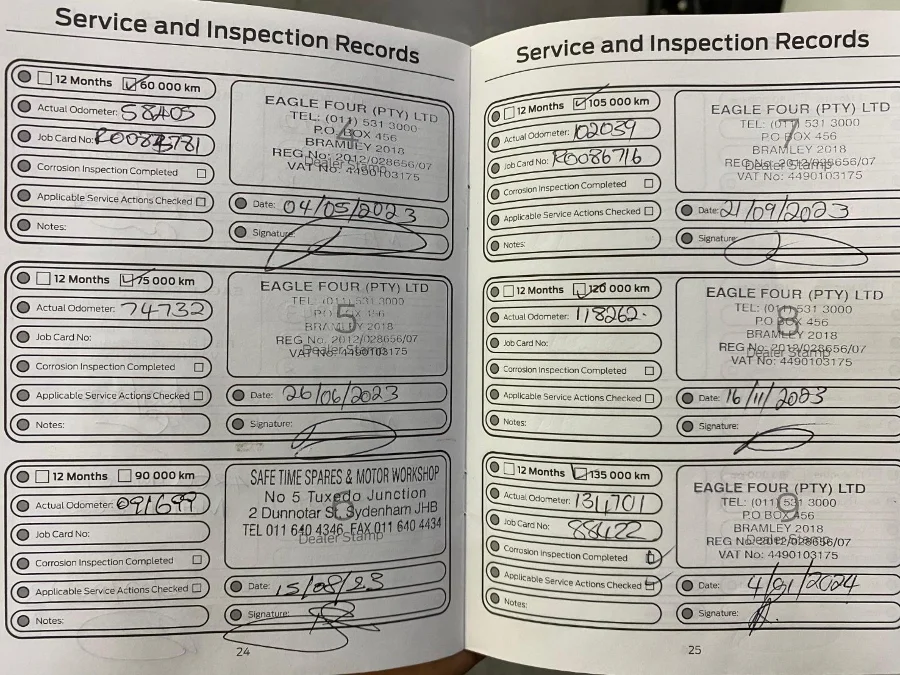 Service and Inspection Records
12 Months 60 000 km
Actual Odometer: 58405
Job Card No:
Corrosion Inspection Completed
Applicable Service Actions Checked
Notes:
4
EAGLE FOUR (PTY) LTD
TEL: (011) 531 3000
P.O. BOX 456
BRAMLEY 2018
REG No: 2012/028656/07
Dealer Stamp
VAT No: 4490103175
Date: 04/05/2023
Signature:
12 Months 75 000 km
Actual Odometer: 74732
Job Card No:
Corrosion Inspection Completed
Applicable Service Actions Checked
Notes:
5
EAGLE FOUR (PTY) LTD
TEL: (011) 531 3000
P.O. BOX 456
BRAMLEY 2018
REG No: 2012/028656/07
Dealer Stamp
VAT No: 4490103175
Date: 26/06/2023
Signature:
12 Months 90 000 km
Actual Odometer: 091699
Job Card No:
Corrosion Inspection Completed
Applicable Service Actions Checked
Notes:
6
SAFE TIME SPARES & MOTOR WORKSHOP
No 5 Tuxedo Junction
2 Dunnotar St. Sydenham JHB
TEL 011 640 4346 FAX 011 640 4434
Dealer Stamp
Date: 15/08/23
Signature:
24
Service and Inspection Records
12 Months 105 000 km
Actual Odometer: 102039
Job Card No: R0086716
Corrosion Inspection Completed
Applicable Service Actions Checked
Notes:
7
EAGLE FOUR (PTY) LTD
TEL: (011) 531 3000
P.O BOX 456
BRAMLEY 2018
REG No: 2012/028656/07
Dealer Stamp
VAT No: 4490103175
Date: 21/09/2023
Signature:
12 Months 120 000 km
Actual Odometer: 118262.
Job Card No:
Corrosion Inspection Completed
Applicable Service Actions Checked
Notes:
8
EAGLE FOUR (PTY) LTD
TEL: (011) 531 3000
P.O BOX 456
BRAMLEY 2018
REG No: 2012/028656/07
Dealer Stamp
VAT No: 4490103175
Date: 16/11/2023
Signature:
12 Months 135 000 km
Actual Odometer: 134701
Job Card No: 88422
Corrosion Inspection Completed
Applicable Service Actions Checked
Notes:
9
EAGLE FOUR (PTY) LTD
TEL: (011) 531 3000
P.O BOX 456
BRAMLEY 2018
REG No: 2012/028656/07
Dealer Stamp
VAT No: 4490103175
Date: 4/01/2024
Signature:
25